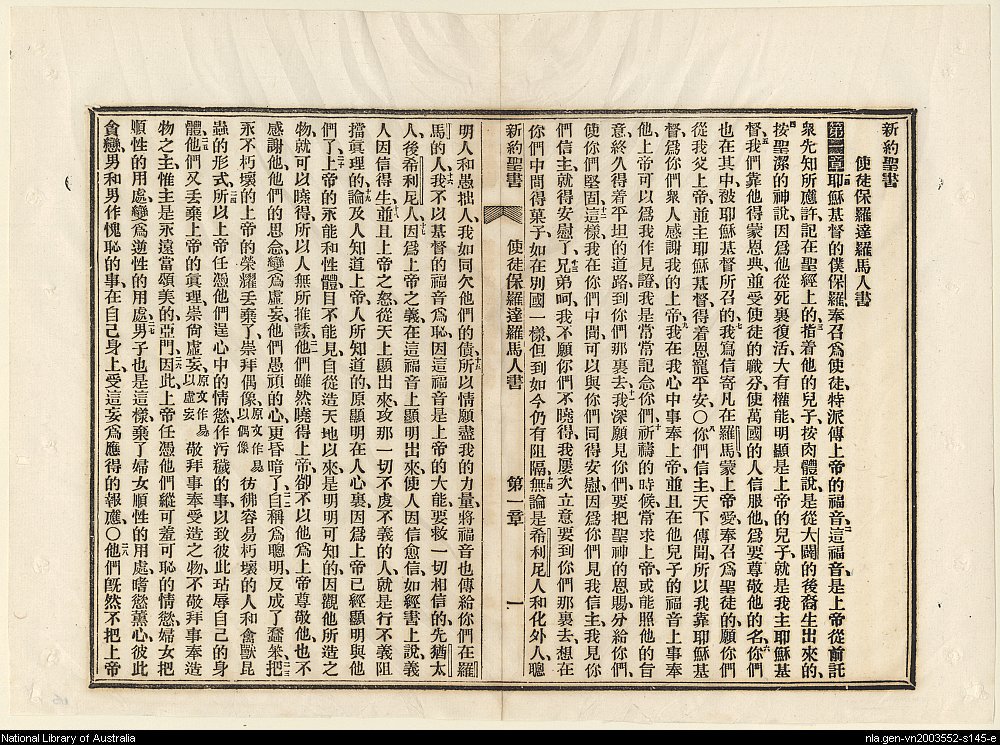 新約聖書
使徒保羅達羅馬人書
第一章耶穌基督的僕保羅奉召爲使徒特派傳上帝的福音二這福音是上帝從前託
衆先知所應許記在聖經上的三指着他的兒子按肉體說是從大闢的後裔生出來的
四按聖潔的神說因爲他從死裏復活大有權能明顯是上帝的兒子就是我主耶穌基
督五我們靠他得蒙恩典並受使徒的職分使萬國的人信服他爲要尊敬他的名六你們
也在其中被耶穌基督所召的七我寫信寄凡在羅馬蒙上帝愛奉召爲聖徒的願你們
從我父上帝並主耶穌基督得着恩寵平安〇八你們信主天下傳聞所以我靠耶穌基
督爲你們衆人感謝我的上帝九我在我心中事奉上帝並且在他兒子的福音上事奉
他上帝可以爲我作見證我是常常記念你們十祈禱的時候常求上帝或能照他的旨
意終久得着平坦的道路到你們那裏去十一我深願見你們要把聖神的恩賜分給你們
使你們堅固十二這樣我在你們中間可以與你們同得安慰因爲你們見我信主我見你
們信主就得安慰了十三兄弟呵我不願你們不曉得我屢次立意要到你們那裏去想在
你們中間得菓子如在別國一樣但到如今仍有阻隔十四無論是希利尼人和化外人聰
新約聖書
使徒保羅達羅馬人書
第一章
一
明人和愚拙人我如同欠他們的債十五所以情願盡我的力量將福音也傳給你們在羅
馬的人十六我不以基督的福音爲恥因這福音是上帝的大能要救一切相信的先猶太
人後希利尼人十七因爲上帝之義在這福音上顯明出來使人因信愈信如經書上說義
人因信得生十八並且上帝之怒從天上顯出來攻那一切不虔不義的人就是行不義阻
擋眞理的十九論及人知道上帝人所知道的原顯明在人心裏因爲上帝已經顯明與他
們了二十上帝的永能和性體目不能見自從造天地以來是明明可知的因觀他所造之
物就可以曉得所以人無所推諉二一他們雖然曉得上帝卻不以他爲上帝尊敬他也不
感謝他他們的思念變爲虛妄他們愚頑的心更昏暗了二二自稱爲聰明反成了蠢笨二三把
永不朽壞的上帝的榮耀丟棄了崇拜偶像原文作易以偶像彷彿容易朽壞的人和禽獸昆
蟲的形式二四所以上帝任憑他們逞心中的情慾作污穢的事以致彼此玷辱自己的身
體二五他們又丟棄上帝的眞理崇尙虛妄原文作易以虛妄敬拜事奉受造之物不敬拜事奉造
物之主惟主是永遠當頌美的亞門二六因此上帝任憑他們縱可羞可恥的情慾婦女把
順性的用處變爲逆性的用處二七男子也是這樣棄了婦女順性的用處嗜慾薰心彼此
貪戀男和男作愧恥的事在自己身上受這妄爲應得的報應〇二八他們旣然不把上帝
National Library of Australia
nla.gen-vn2003552-s145-e